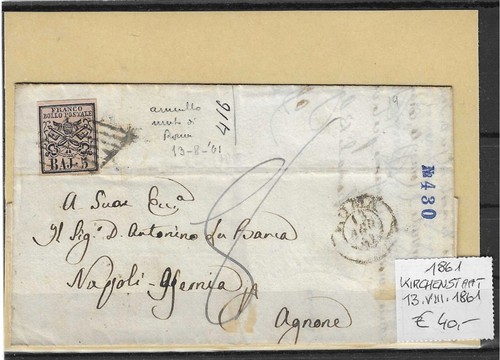 FRANCO
BOLLO PONTALE
BAJ. 5
annullo
muto di
Roma
13-8-'61
416
19
8
No 430
ROMA
13
AGO
61
A Suae Ecc.a
Il Sig.e D. Antonino La Banca
Napoli-Isernia
Agnone
1861
KIRCHENSTAAT
13.VIII.1861
€ 40,-